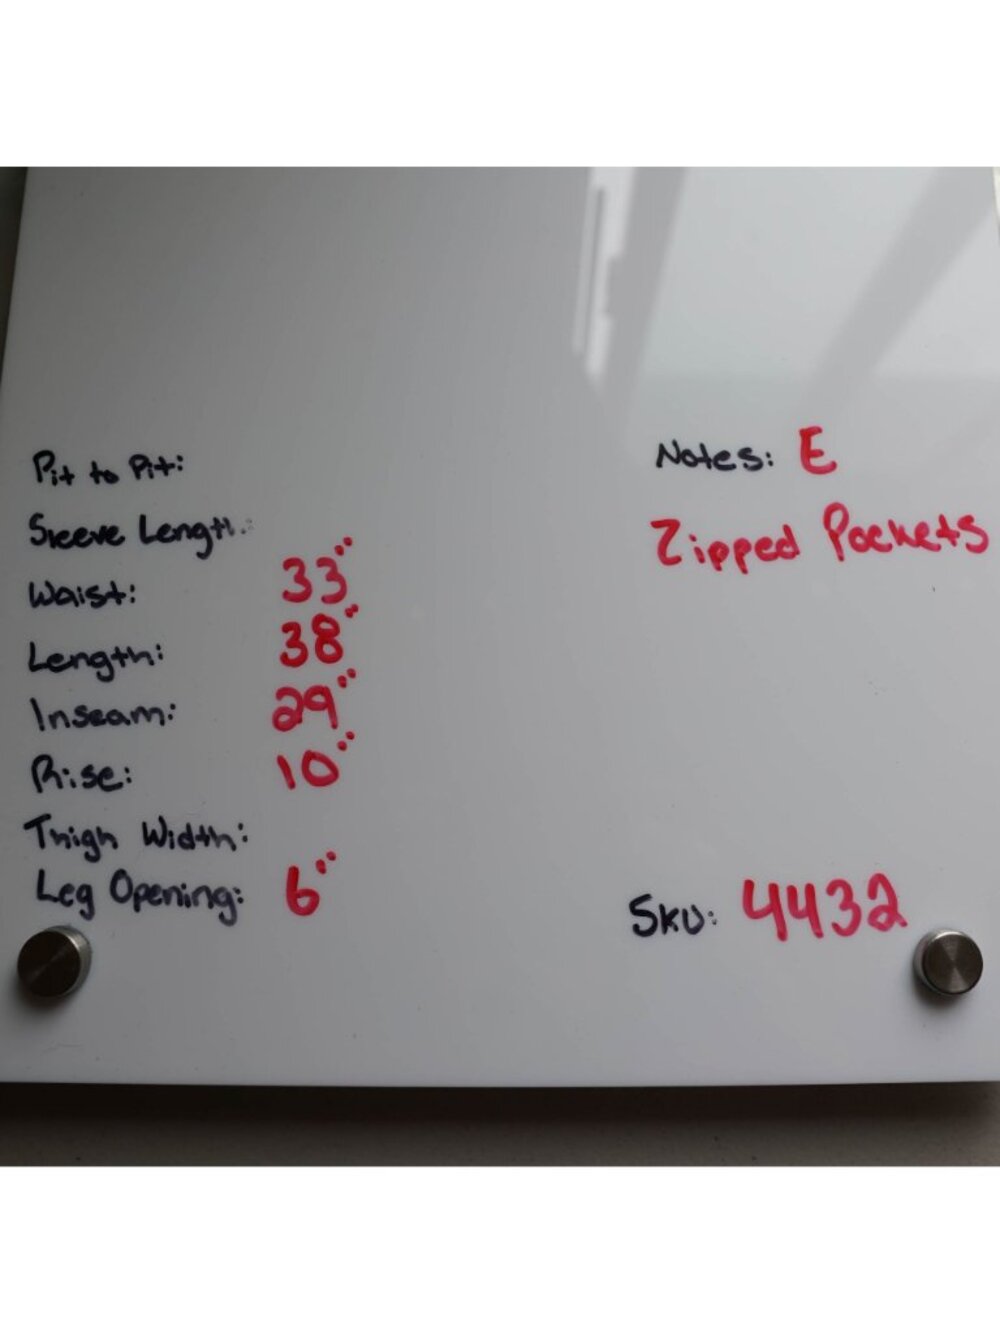 Pit to Pit:
Sleeve Length:
Waist: 33"
Length: 38"
Inseam: 29"
Rise: 10"
Thigh Width:
Leg Opening: 6"
Notes: E
Zipped Pockets
SKU: 4432